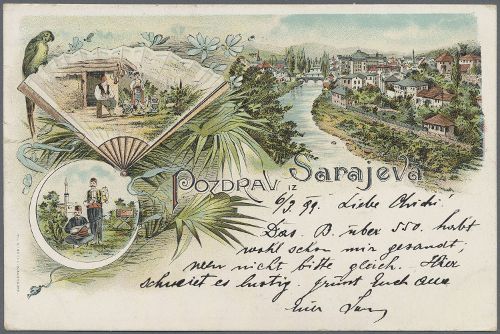 Pozdrav iz Sarajeva
6/3. 99. Liebe
Das. B. über 550. habt
wohl schon mir gesandt,
wenn nicht bitte gleich. Hier
schneiet es lustig. grüsst Euch alle
Euer